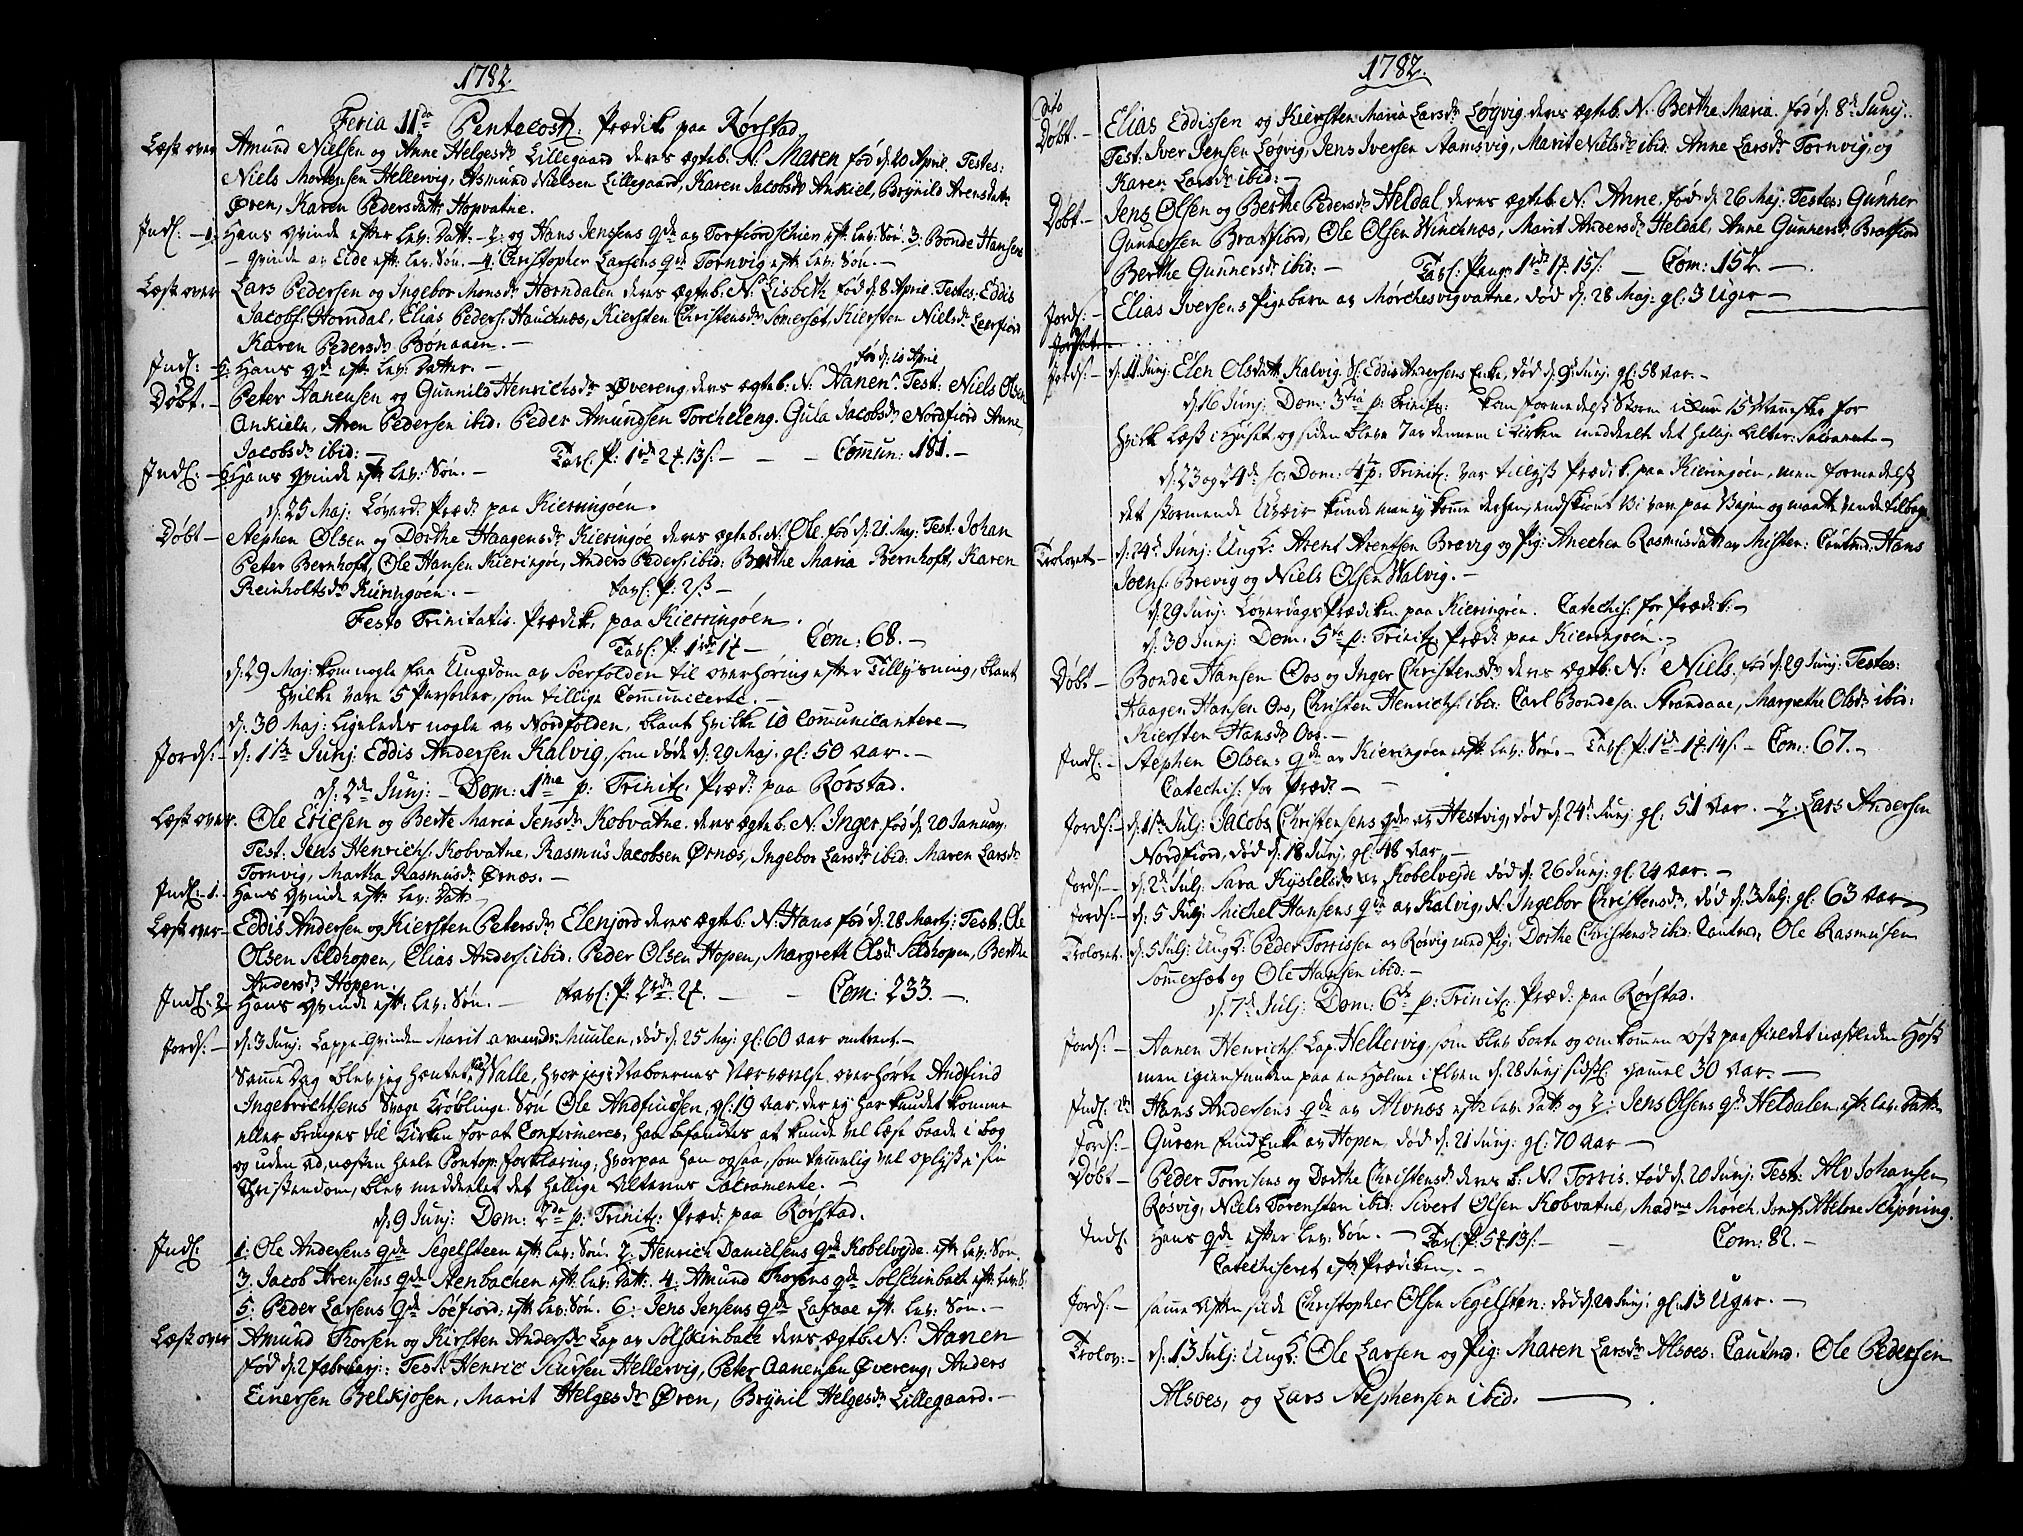 1782.
Feria 11da Pentecost: Prædik paa Rørstad
Læst over Amund Nielsen og Anne Helgesdr Lillegaard deres ægteb. N. Maren fød d: 20 April. Testes:
Niels Mortensen Hellervig, Asmund Nielsen Lillegaard, Karen Jacobsdr Ankiel, Brynild Arensdatr
Øren, Karen Pedersdatr Hopvatne.
Indl: - 1: Hans Qvinde efter lev: Datt: - 2: og Hans Jensens Qde av Torfiordschien eft: lev: Søn. 3: Bonde Hansens
- Qvinde av Eide eft: lev: Søn. - 4: Christopher Larsens Qde Tornvig eft: lev: Søn. -
Læst over Lars Pedersen og Ingebor Monsdr Horndalen deres ægteb. N: Lisbeth fød d: 8 April. Testes: Eddis
Jacobs: Horndal, Elias Peders: Hauchnes, Kiersten Christensdr Somerset, Kiersten Nielsdr Leerfiord
Karen Pedersdr Bonaaen. -
Indl: - 5: Hans Qde eft: lev: Datter. - fød d: 10 April
Døbt. - Peter Aanensen og Gunnild Henrichsdr Øvereng, deres ægteb: N: Aanen. Test: Niels Olsen
Ankieln, Aren Pedersen ibid: Peder Amundsen Torcheleng. Gula Jacobsdr Nordfiord Anne
Jacobsdr ibid: - Tavl: P: 1rd 2# 13s. - - - Com̄un: 181. -
Indl: - 6: Hans Qvinde eft: lev: Søn. -
d: 25 Maj: Løverd: Præd: paa Kierringøen.
Døbt - Stephen Olsen og Dorthe Haagensdr Kieringøe deres ægteb: N: Ole fød d: 21 Maj: Test: Johan
Peter Bernhoft, Ole Hansen Kieringøe, Anders Peders: ibid: Berthe Maria Bernhoft, Karen
Reinholtsdr Kieringøen. - Tavl: P: 2s -
Festo Trinitatis. Prædik paa Kierringøen.
Tavl: P: 1rd 1# - Com: 68. -
d: 29 Maj: kom nogle faa Ungdom av Søerfolden til overhøring efter Tillysning, blant
hvilke vare 5 Personer, som tillige Com̄unicerte. -
d: 30 Maj: ligeledes nogle av Nordfolden, blant hvilke 10 Com̄unicantere -
Jords: - d: 1ste Junj: Eddis Andersen Kalvig, som døde d: 29 Maj. gl: 50 Aar. -
d: 2de Junj: - Dom: 1ma p: Trinit: Præd: paa Rørstad.
Læst over. Ole Ericsen og Berte Maria Jensdr Kobvatne. deres ægteb: N. Inger fød d: 20 Januarj:
Test: Jens Henrichs: Kobvatne, Rasmus Jacobsen Ørnes, Ingebor Larsdr ibid: Maren Larsdr
Tornvig, Martha Rasmusdr Ørnæs. -
Indl: - 1. Hans Qvinde eft: lev: Datt: -
Læst over - Eddis Andersen og Kiersten Petersdr Elenjord deres ægteb: N: Hans fød d: 28 Martj: Test: Ole
Olsen Sildhopen, Elias Anders: ibid: Peder Olsen Hopen, Margreth Olsdr Sildhopen, Berthe
Andersdr Hopen.
Indl: 2 - Hans Qvinde eft: lev: Søn. - Tavl: P: 2rd. 2#. - - Com: 233. -
Jords: - d: 3 Junj: Lappe-Qvinden Marit Amundsdr Muulen, død d: 25 Maj: gl: 60 Aar omtrent. -
Sam̄e Dag blev jeg hentet til Walle, hvor jeg i Naboernes Nærværelse, overhørte Andfind
Ingebrichtsens Svage Krøblinge Søn Ole Andfindsen, gl: 19 Aar, der ej har kundet kom̄e
eller bringes til Kirken for at Confirmeres, han befandtes at kunde vel læse baade i bog
og uden ad, næsten heele Pontop: Forklaring; hvorpaa han ogsaa, som tem̄elig vel oplyst i sin
Christendom, blev meddeelet det hellige Alterens Sacramente. -
d: 9 Junj: Dom: 2da p: Trinit: Præd: paa Rørstad.
Indl: 1: Ole Andersens Qde Segelsteen eft: lev: Søn. 2: Henrich Danielsens Qde Kobelvejde eft: lev: Søn.
3: Jacob Arensens Qde Stenbachen eft: lev: Datt. 4: Amund Thorsens Qde Solschinbach eft: lev: S.
5: Peder Larsens Qde Søefiord: eft: lev: Søn. 6: Jens Jensens Qde Laxaae eft: lev: Søn. -
Læst over Amund Thorsen og Kirsten Andersdr Lap av Solskinbach deres ægteb: N: Aanen
fød d: 2 Februarj: Test: Henric Siursen Hellervig, Peter Aanensen Øvereng, Anders
Einersen Belkjosen, Marit Helgesdr Øren, Brynil Helgesdr Lillegaard. -
1782.
dito
Døbt. - Elias Eddissen og Kiersten Maria Larsdr Løgvig deres ægteb. N: Berthe Maria. fød d: 8de Junj:
Test: Iver Jensen Løgvig, Jens Iversen Aamsvig, Marit Nielsdr ibid: Anne Larsdr Tornvig, og
Karen Larsdr ibid: -
Døbt - Jens Olsen og Berthe Pedersdr Heldal deres ægteb: N: Anne, fød d: 26 Maj: Testes: Gunner
Gunnersen Bratfiord, Ole Olsen Winchnæs, Marit Andersdr Heldal, Anne Gunnersdr Bratfiord
Berthe Gunnersdr ibid: - Tavl: Penge 1rd 1# 15s. - Com: 152. -
Jords: - Elias Iversens Pigebarn av Mørchesvigvatne, død d: 28 Maj: gl: 3 Uger -
Jords: - d: 11 Junj: Elen Olsdatt: Kalvig, Sl: Eddis Andersens Enke, død d: 9 Junj: gl: 58 Aar. -
d: 16 Junj: Dom: 3tia p: Trinit: kom formedelst Storm ikkun 15 Mennesker for
hvilke læst i Huset, og siden bleve 7 av dennem i Kirken meddeelt det hellig: Alter: Sacrament -
d: 23 og 24de sc: Dom: 4ta p: Trinit: var tillyst Prædik: paa Kieringøen, men formedelst
det stormende Uveir kunde man ej komme derhen, endskiønt Vi var paa Vejen og maatte vende tilbage
Trolovet - d: 24de Junj: Ungk: Arent Arentsen Brevig og Pig: Anechen Rasmusdatt: av Misten: Cautnd: Hans
Joens: Brevig og Niels Olsen Walvig. -
d: 29 Junj: Løverdags Prædiken paa Kieringøen. Catechis: for Prædik: -
d: 30 Junj: Dom: 5ta p: Trinit: Præd: paa Kieringøen. -
Døbt - Bonde Hansen Oos og Inger Christensdr deres ægteb: N: Niels, fød d: 29 Junj: Testes:
Haagen Hansen Oos, Christen Henrichs: ibid: Carl Bondesen Strandaae, Margrethe Olsdr ibid:
Kiersten Hansdr Oos. -
Indl: - Stephen Olsens Qde av Kieringøen eft: lev: Søn. - Tavl: P: 1rd 1# 14s. - Com: 67. -
Catechis: for Præd: - -
Jords: - d: 1ste Julj: Jacob Christensens Qde av Hestvig, død d: 24de Junj: gl: 51 Aar. - 2. Lars Andersen
Nordfiord, død d: 18 Junj: gl: 48 Aar. -
Jords: - d: 2de Julj: Sara Kystelsdr av Kobelvejde død d: 26 Junj: gl: 24 Aar. -
Jords: - d: 5 Julj: Michel Hansens Qde av Kalvig, N: Ingebor Christensdr, død d: 3 Julj: gl: 63 Aar -
Trolovet - d: 5 Julj: Ungk: Peder Torrissen av Røsvig med Pig: Dorthe Christensdr ibid: Cautnd, Ole Rasmusen
Sommerset og Ole Hansen ibid: -
d: 7de Julj: Dom: 6ta p: Trinit: Præd: paa Rørstad.
Jords: - Aanen Henrichs: Lap. Hellervig, som blev borte og omkommen Øst paa fieldet næstleden Høst
men igienfunden paa en Holme i Elven d: 28 Junj sidstl: gammel 30 Aar. -
Indl: 1 Hans Andersens Qde av Alvnes eft: lev: Datt: og 2: Jens Olsens Qde Heldalen, eft: lev: Datt:
Jords: - Guren Find Enke av Hopen, død d: 21 Junj: gl: 70 Aar -
Døbt - Peder Torrisens og Dorthe Christensdr deres b: N: Torris. fød d: 20 Junj: Test: Alv Johansen
Røsvig, Niels Torensten ibid: Sivert Olsen Kobvatne, Madme Mørch. Jomf: Abelone Schjøning.
Indl: Hans Qde efter lev: Søn. - Tavl: P: 5# 13s. - - Com: 82. -
Catechiseret eft: Prædiken. -
Jords: - sam̄e Aften silde Christopher Olsen Segelsten: død d: 24 Junj: gl: 13 Uger. -
Trolov: - d: 13 Julj: Ungk: Ole Larsen og Pig: Maren Larsdr Alsøes: Cautnd: Ole Pedersen
Alsøes, og Lars Stephensen ibid.